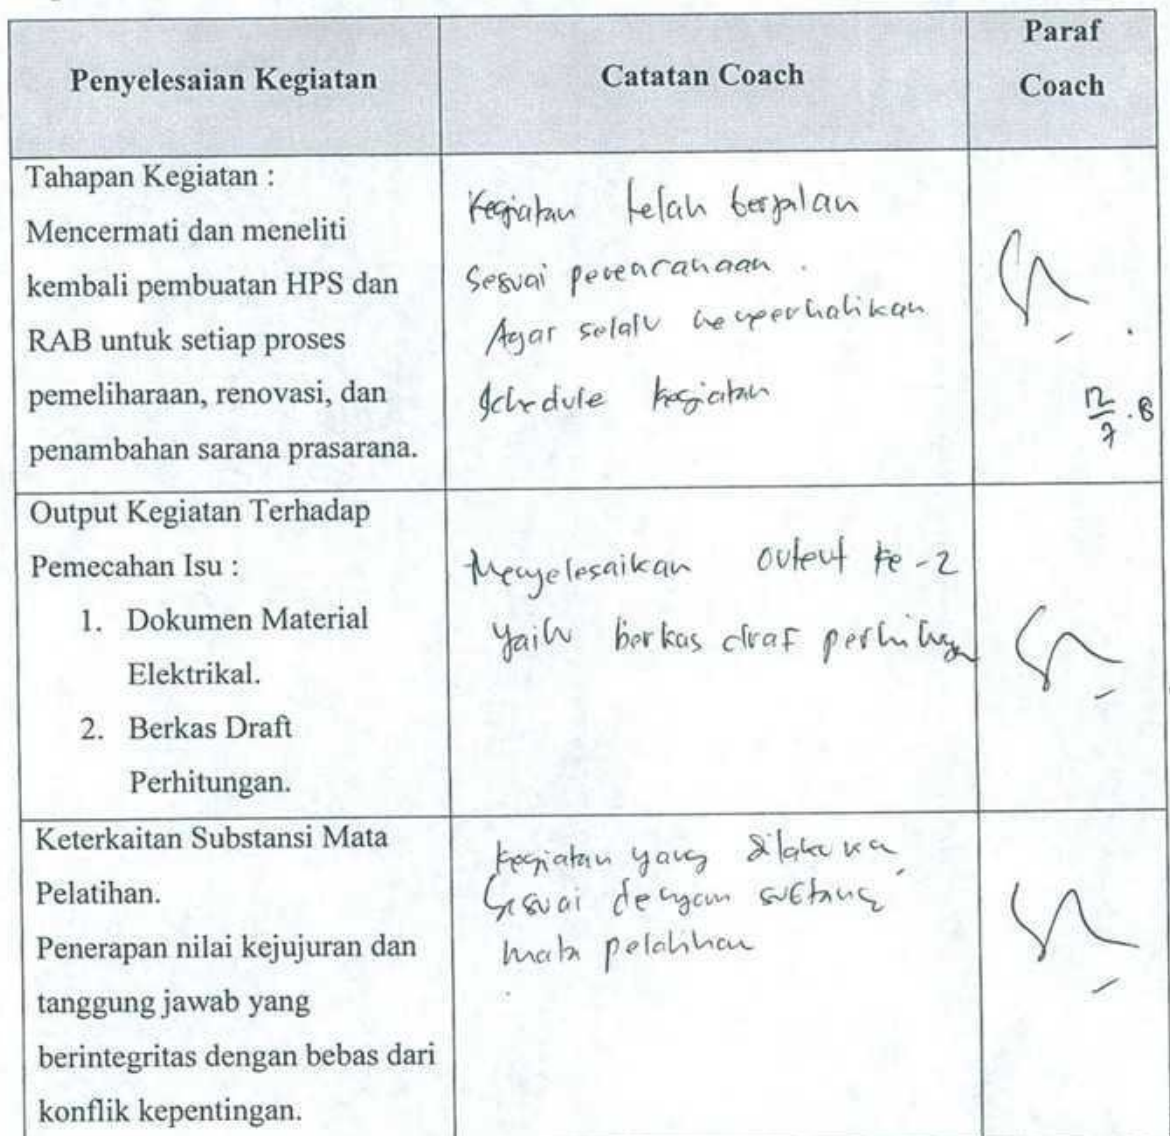 Penyelesaian Kegiatan
Catatan Coach
Paraf
Coach
Tahapan Kegiatan :
Mencermati dan meneliti
kembali pembuatan HPS dan
RAB untuk setiap proses
pemeliharaan, renovasi, dan
penambahan sarana prasarana.
Kegiatan telah berjalan
Sesuai perencanaan .
Agar selalu memperhatikan
Schedule kegiatan
12/7
Output Kegiatan Terhadap
Pemecahan Isu :
1. Dokumen Material
Elektrikal.
2. Berkas Draft
Perhitungan.
Menyelesaikan output ke-2
yaitu berkas draf
Keterkaitan Substansi Mata
Pelatihan.
Penerapan nilai kejujuran dan
tanggung jawab yang
berintegritas dengan bebas dari
konflik kepentingan.
Kegiatan yang
Sesuai dengan
mata pelatihan